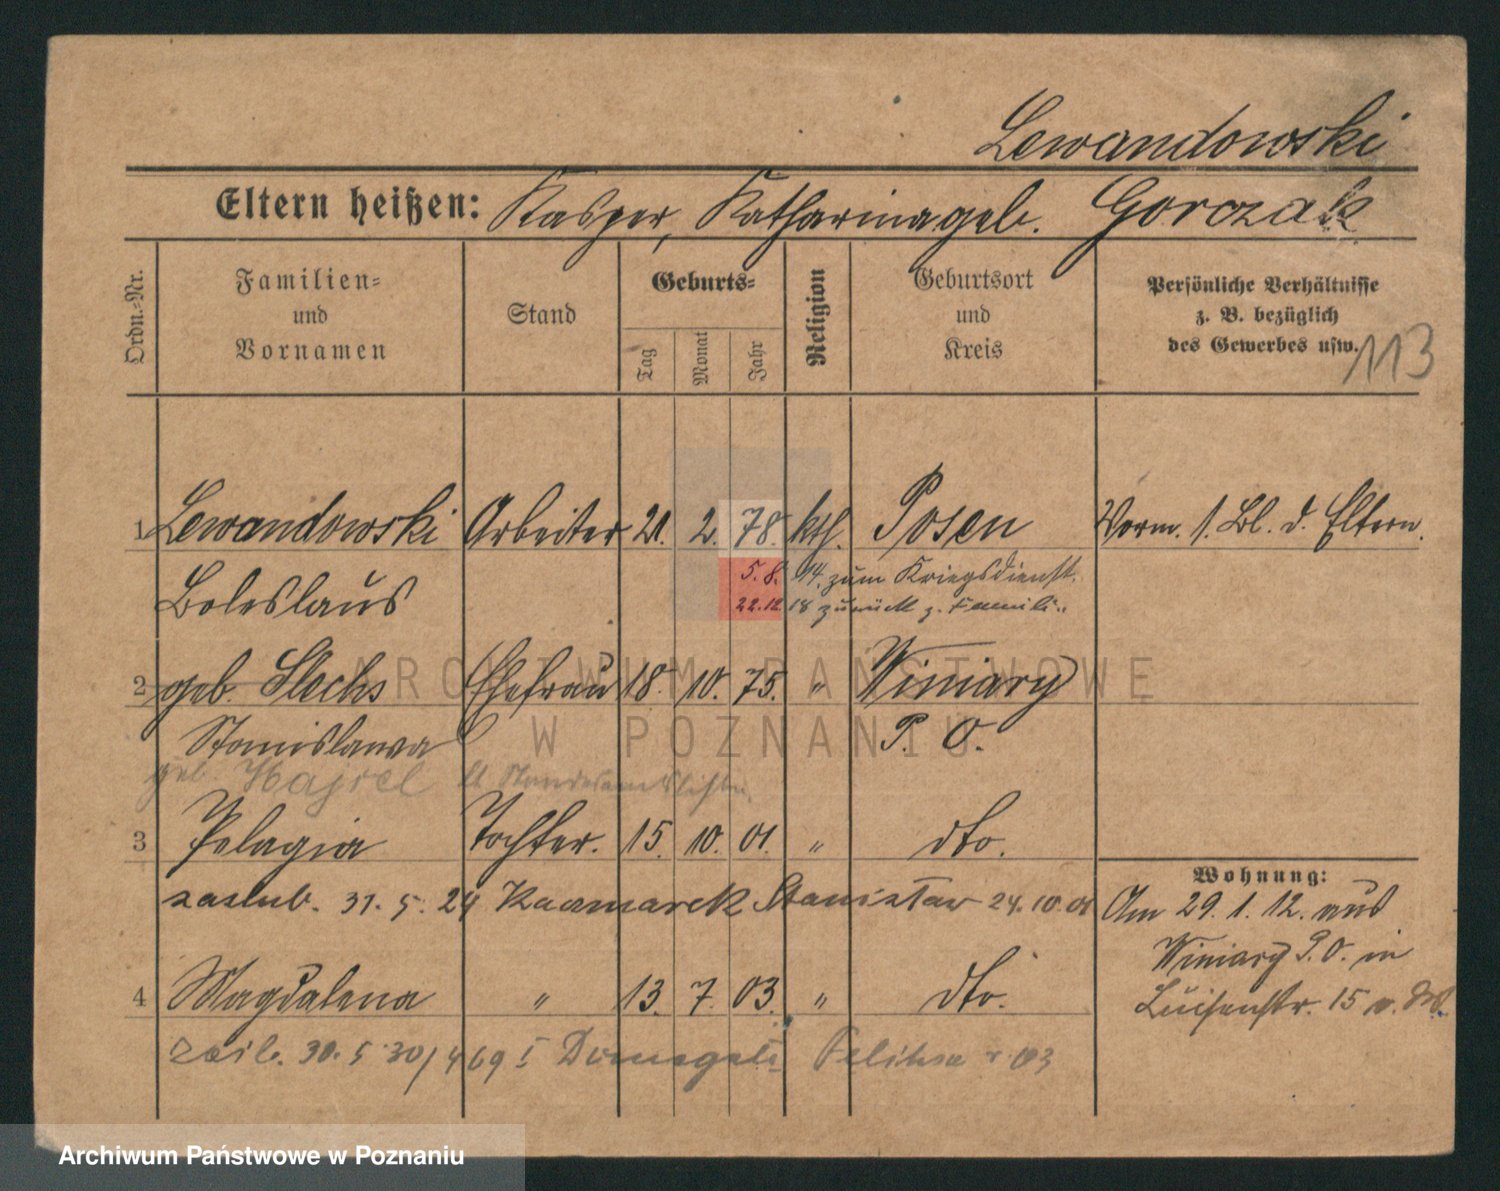 Lewandowski
Eltern heißen: Kasper, Katharina geb. Gorczak
Ordn.-Nr.
Familien- und Vornamen
Stand
Geburts-
Tag
Monat
Jahr
Religion
Geburtsort und Kreis
Persönliche Verhältnisse
z. B. bezüglich
des Gewerbes usw.
113
1 Lewandowski Arbeiter 21. 2. 78. kth. Posen Vorm. 1. Bl. d. Eltern.
Boleslaus 5. 8. 14. zum Kriegsdienst.
22.12. 18 zurück z. Famili..
2 geb. Stachs Ehefrau 18. 10. 75. " Winiary
Stanislawa P. O.
geb. lt Standesamtsliste.
3 Pelagia Tochter. 15. 10. 01. " dto.
zaslub. 31. 5. 24 Kaczmarek Stanisław 24.10.01
4 Magdalena " 13. 7. 03. " dto.
30. 5 30/ 469 I
Wohnung:
Am 29. 1. 12. aus
Winiary P. O. in
Luisenstr. 15
ARCHIWUM PAŃSTWOWE
W POZNANIU
Archiwum Państwowe w Poznaniu